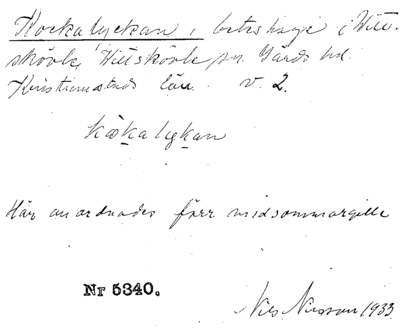 Kockalyckan, beteshage i Vitt-
skövle, Vittskövle sn. Gärds hd.
Kristianstads län. v. 2.
kåkalykan
Här anordnades förr midsommargille
Nr 5340.
Nils Nilsson 1933.